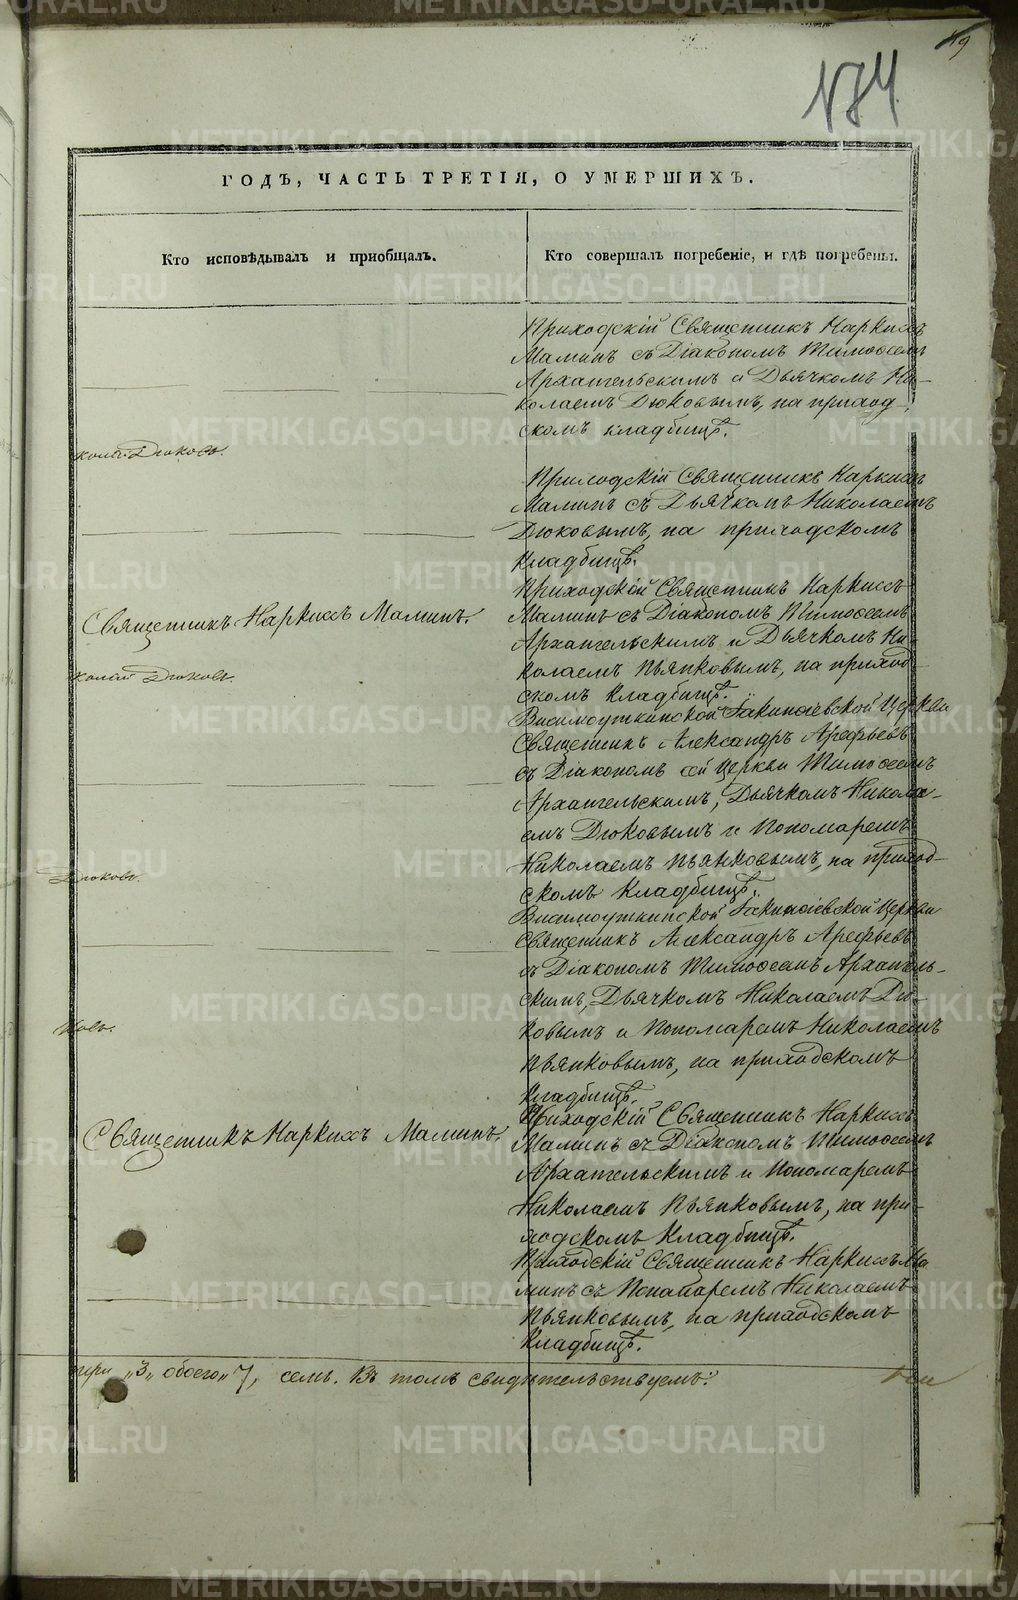 49
174
ГОДЪ, ЧАСТЬ ТРЕТІЯ, О УМЕРШИХЪ.
Кто исповѣдывалъ и приобщалъ.
Кто совершалъ погребеніе, и гдѣ погребены.
Приходскій Священникъ Наркиссъ
Маминъ съ Діакономъ Тимофеемъ
Архангельскимъ и Дьячкомъ Ни-
колаемъ Дюковымъ, на приход-
скомъ кладбищѣ.
колай Дюковъ.
Приходскій Священникъ Наркиссъ
Маминъ съ Дьячкомъ Николаемъ
Дюковымъ, на приходскомъ
кладбищѣ.
Священникъ Наркиссъ Маминъ.
Приходскій Священникъ Наркиссъ
Маминъ съ Діакономъ Тимофеемъ
Архангельскимъ и Дьячкомъ Ни-
колаемъ Пьянковымъ, на приход-
скомъ кладбищѣ.
колай Дюковъ.
Висимоуткинской Іакинфіевской Церкви
Священникъ Александръ Арефьевъ
съ Діакономъ сей Церкви Тимофеемъ
Архангельскимъ, Дьячкомъ Никола-
емъ Дюковымъ и Пономаремъ
Николаемъ Пьянковымъ, на приход-
скомъ кладбищѣ.
Дюковъ.
Висимоуткинской Іакинфіевской Церкви
Священникъ Александръ Арефьевъ
съ Діакономъ Тимофеемъ Архангель-
скимъ, Дьячкомъ Николаемъ Дю-
ковымъ и Пономаремъ Николаемъ
Пьянковымъ, на приходскомъ
кладбищѣ.
ковъ.
Священникъ Наркиссъ Маминъ.
Приходскій Священникъ Наркиссъ
Маминъ съ Діакономъ Тимофеемъ
Архангельскимъ и Пономаремъ
Николаемъ Пьянковымъ, на при-
ходскомъ кладбищѣ.
Приходскій Священникъ Наркиссъ Ма-
минъ съ Пономаремъ Николаемъ
Пьянковымъ, на приходскомъ
кладбищѣ.
три „3„ обоего „7, семь. Въ томъ свидѣтельствуемъ:
METRIKI.GASO-URAL.RU